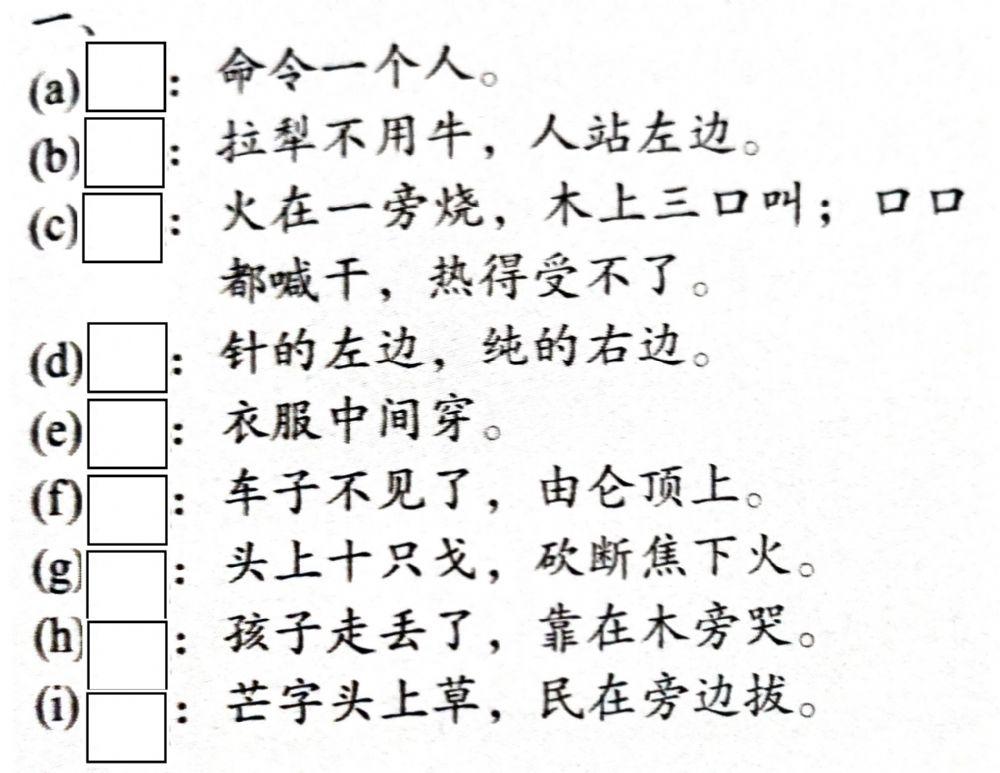 一、
(a) : 命令一个人。
(b) : 拉犁不用牛，人站左边。
(c) : 火在一旁烧，木上三口叫；口口
都喊干，热得受不了。
(d) : 针的左边，纯的右边。
(e) : 衣服中间穿。
(f) : 车子不见了，由仑顶上。
(g) : 头上十只戈，砍断焦下火。
(h) : 孩子走丢了，靠在木旁哭。
(i) : 芒字头上草，民在旁边拔。